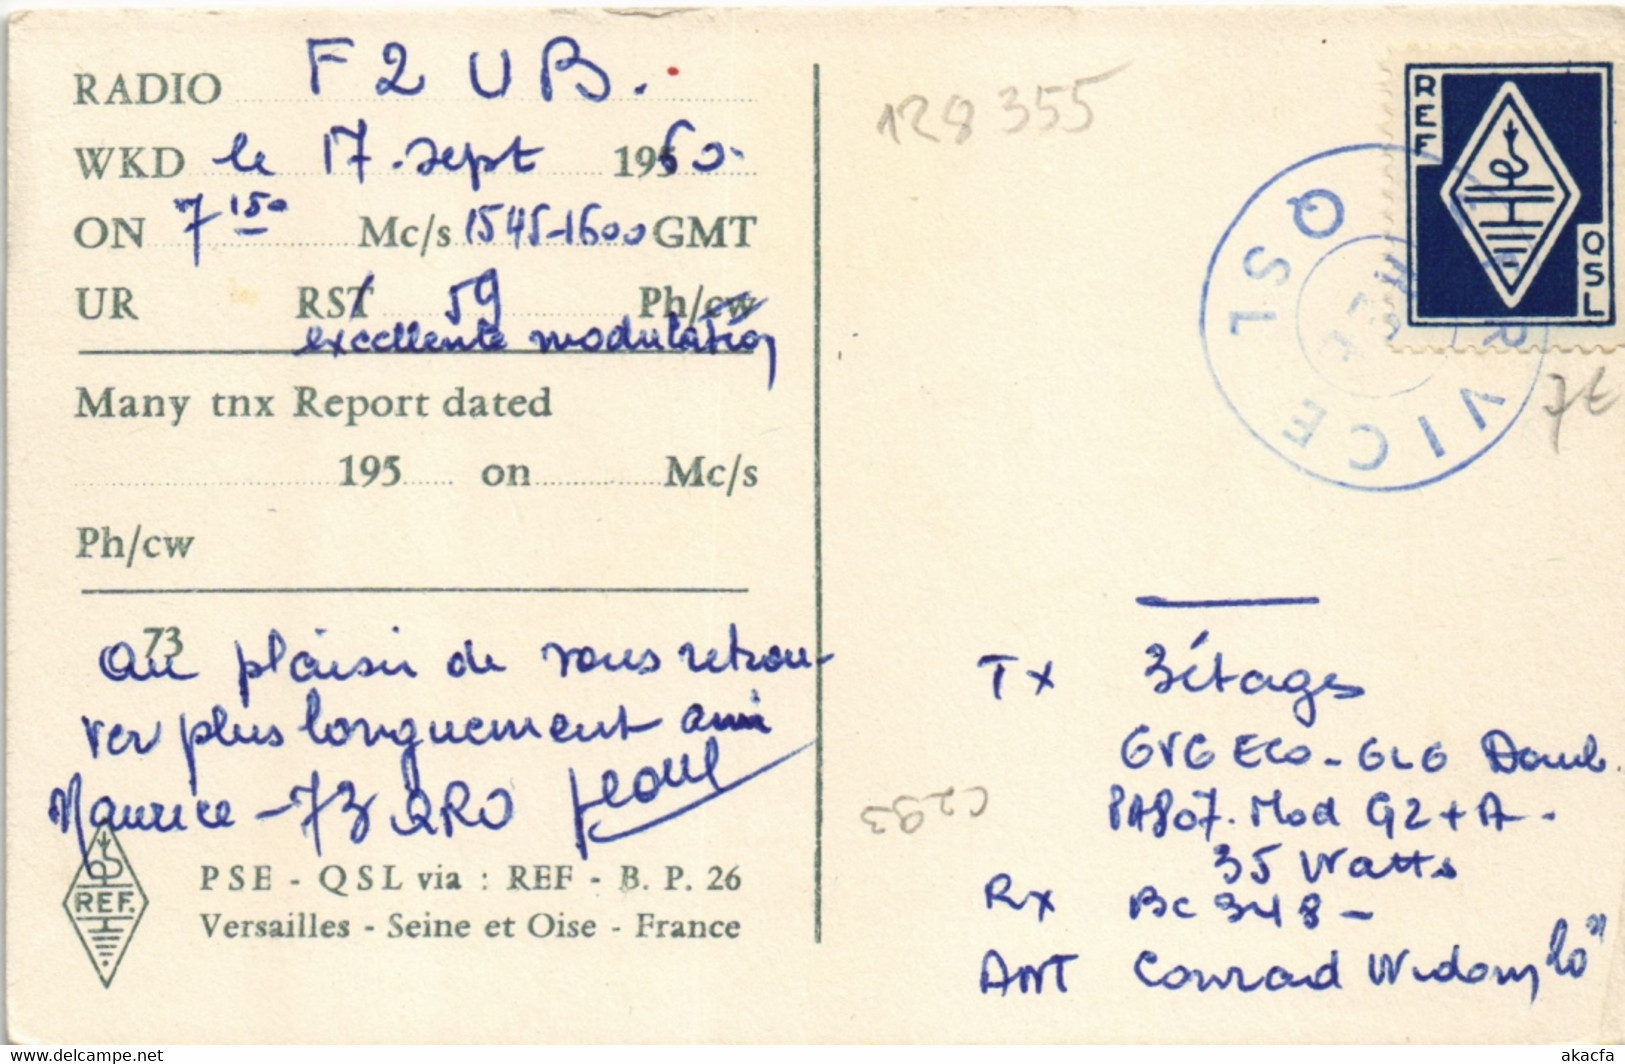 RADIO F2UB.
WKD le 17. sept 1960.
ON 7 150 Mc/s 1545-1600 GMT
UR RST 59 Ph/cw
excellente modulation
Many tnx Report dated
195 on Mc/s
Ph/cw
73
au plaisir de vous retrou-
ver plus longuement ami
Maurice - 73 QRO
REF.
PSE - QSL via : REF - B. P. 26
Versailles - Seine et Oise - France
128 355
REF
QSL
SERVICE QSL
7t
C293
Tx 3 étages
6V6 ECO - 6L6 Doub.
PA 807. Mod G2 + A.
35 Watts
Rx BC 348 -
ANT Conrad Windom 20 m
akacfa
www.delcampe.net